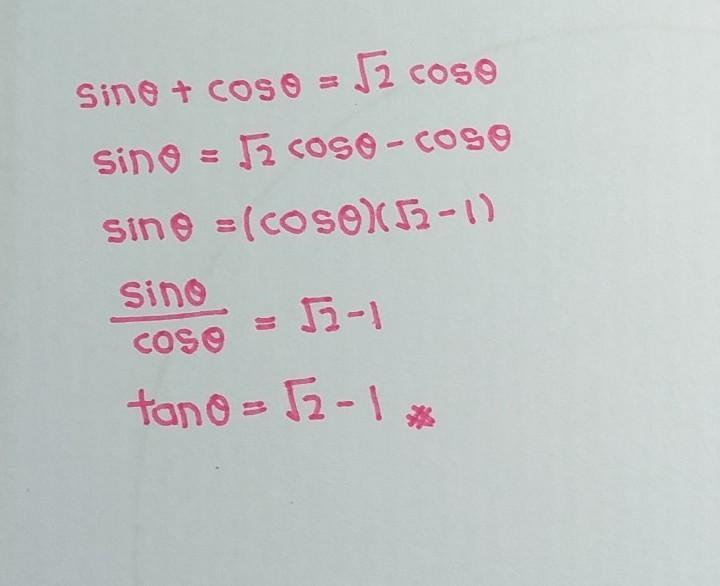 sinθ + cosθ = √2 cosθ
sinθ = √2 cosθ - cosθ
sinθ = (cosθ)(√2 - 1)
sinθ/cosθ = √2 - 1
tanθ = √2 - 1 ⋇